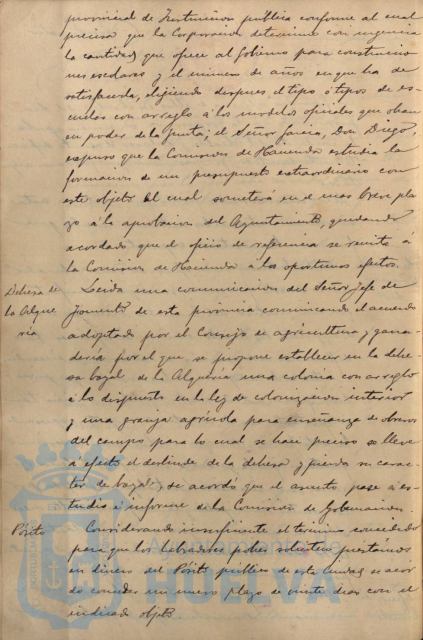 provincial de Instruccion publica conforme al cual
precisa que la Corporacion determine con urgencia
la cantidad que ofrece al Gobierno para construccio
nes escolares y el número de años en que ha de
satisfacerla, eligiendo despues el tipo ó tipos de es-
cuelas con arreglo á los modelos oficiales que obran
en poder de la Junta; el Señor Garcia, Don Diego,
expuso que la Comision de Hacienda estudia la
formacion de un presupuesto extraordinario con
este objeto el cual someterá en el mas breve pla
zo á la aprobacion del Ayuntamiento, quedando
acordado que el oficio de referencia se remita á
la Comision de Hacienda á los oportunos efectos.
Dehesa de
la Alque
ria
Leida una comunicacion del Señor Jefe de
Fomento de esta provincia comunicando el acuerdo
adoptado por el Consejo de agricultura y gana-
deria por el que se propone establecer en la dehe-
sa bozal de la Alqueria una colonia con arreglo
á lo dispuesto en la ley de colonizacion interior
y una granja agricola para enseñanza de obreros
del campo para lo cual se hace preciso se lleve
á efecto el deslinde de la dehesa y pierda su carac-
ter de bozal, se acordó que el asunto pase á es-
tudio é informe de la Comision de Gobernacion.
Pósito
Considerando insuficiente el termino concedido
para que los labradores pobres soliciten prestamos
en dinero del Pósito publico de esta ciudad se acor
dó conceder un nuevo plazo de veinte dias con el
indicado objeto
Ayuntamiento de
HUELVA